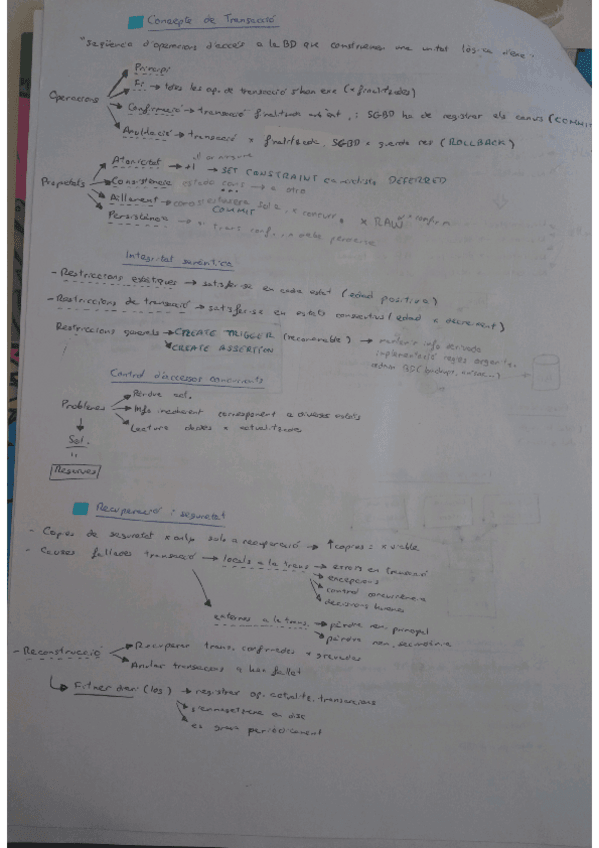 Concepte de Transacció
"Seqüència d'operacions d'accés a la BD que constitueixen una unitat lògica d'exe.
Principi
Fi → totes les op. de transacció s'han exe (x finalitzades)
Operacions
Confirmació → transacció finalitzada : SGBD ha de registrar els canvis (COMMIT
Anul·lació → transacció x finalitzada, SGBD x guarda res (ROLLBACK)
Atomicitat
→ SET CONSTRAINT DEFERRED
Propietats
Consistència estado cons → a otro
Aïllament
COMMIT
x RAW
Persistència → trans conf.
Integritat semàntica
- Restriccions estàtiques → satisfer-se en cada estat (edad positiva)
- Restriccions de transacció → satisfer-se en estats consecutius (edad x decrement)
Restriccions generals → CREATE TRIGGER (recomanable) → mantenir info derivada
CREATE ASSERTION
implementació regles organitz.
admin BD (backups, avisos...)
Control d'accessos concurrents
Perdre act.
Problemes → Info incoherent corresponent a diversos estats
Lectura dades x actualitzades
Sol.
Reserves
Recuperació i seguretat
- Còpies de seguretat x only sols a recuperació → ↑ còpies : x viable
- Causes fallades transacció → locals a la trans → errors en transacció
excepcions
control concurrència
decisions
externes a la trans. → pèrdre mem. principal
pèrdre mem. secundària
- Reconstrucció → Recuperar trans. confirmades x gravades
Anular transaccions
Fitxer diari (log) → registrar op. actualitz. transaccions
s'emmagatzema en disc
es grava periòdicament